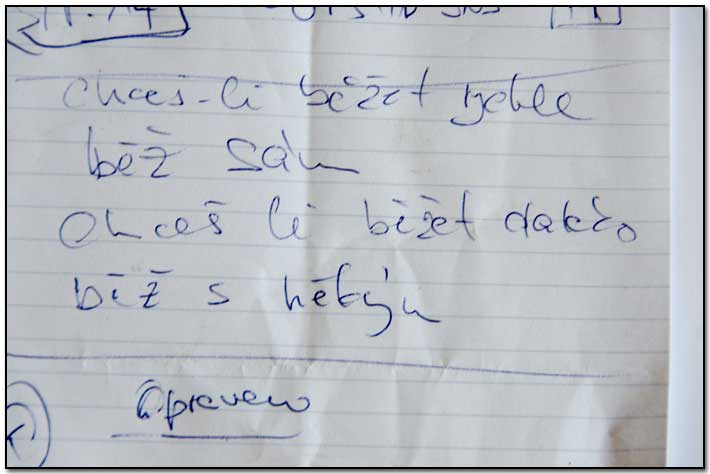 Chceš-li běžet rychle
běž sám
Chceš li běžet daleko
běž s někým
Opraveno